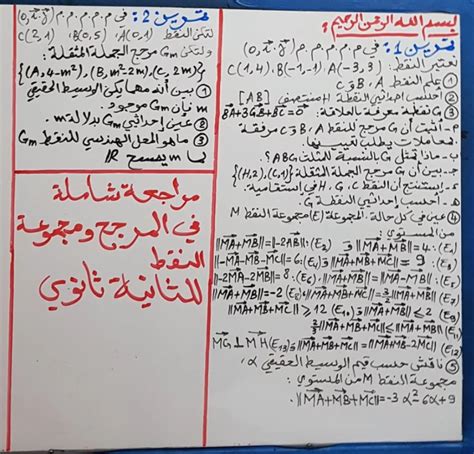 بسم الله الرحمن الرحيم:
تمرين 1: في م.م.م.م (o, i, j)
نعتبر النقط: A(-3,3) ، B(-1,-1) ، C(1,4)
① علم النقط A، B و C
② أحسب إحداثيي النقطة H منتصف [AB]
③ G نقطة معرفة بالعلاقة: BA+3GB+BC=0
م- أثبت أن G مرجح للنقط A، B و C مرفقة
بمعاملات يطلب تعيينها.
ب- ماذا تمثل G بالنسبة للمثلث ABC؟
ج- بين أن G مرجح الجملة المثقلة {(H,2),(C,1)}
د- إستنتج أن النقط C، G، H في استقامية.
هـ- أحسب إحداثيي النقطة G.
④ عين في كل حالة المجموعة (E) مجموعة النقط M
من المستوي:
||MA+MB||=4: (E₁) و ||MA+MB||=||-2AB||: (E₂)
||MA+MB+MC||=9: (E₃) و ||-MA-MB-MC||=6: (E₄)
||MA+MB||=||MA-MB||: (E₅) ، ||-2MA-2MB||=8: (E₆)
||MA+MB||=-2
||MA+MB||≤2
||MA+MB+MC||≥12
||MA+MB+MC||=||MA+MB-2MC||
MG⊥MH
⑤ ناقش حسب قيم الوسيط الحقيقي α
مجموعة النقط M من المستوي:
||MA+MB+MC||=-3α²6α+9
تمرين 2: في م.م.م.م (o, i, j)
لتكن النقط: A(0,1) ، B(5,0) ، C(2,1)
ولتكن Gm مرجح الجملة المثقلة:
{(A,4-m²),(B,m²-2m),(C,2m)}
① بين أنه مهما يكن الوسيط الحقيقي
m فإن Gm موجود.
② عين إحداثيي Gm بدلالة m.
③ ما هو المحل الهندسي للنقط Gm
لما m يمسح IR
مراجعة شاملة
في المرجح ومجموعة
النقط
للثانية ثانوي